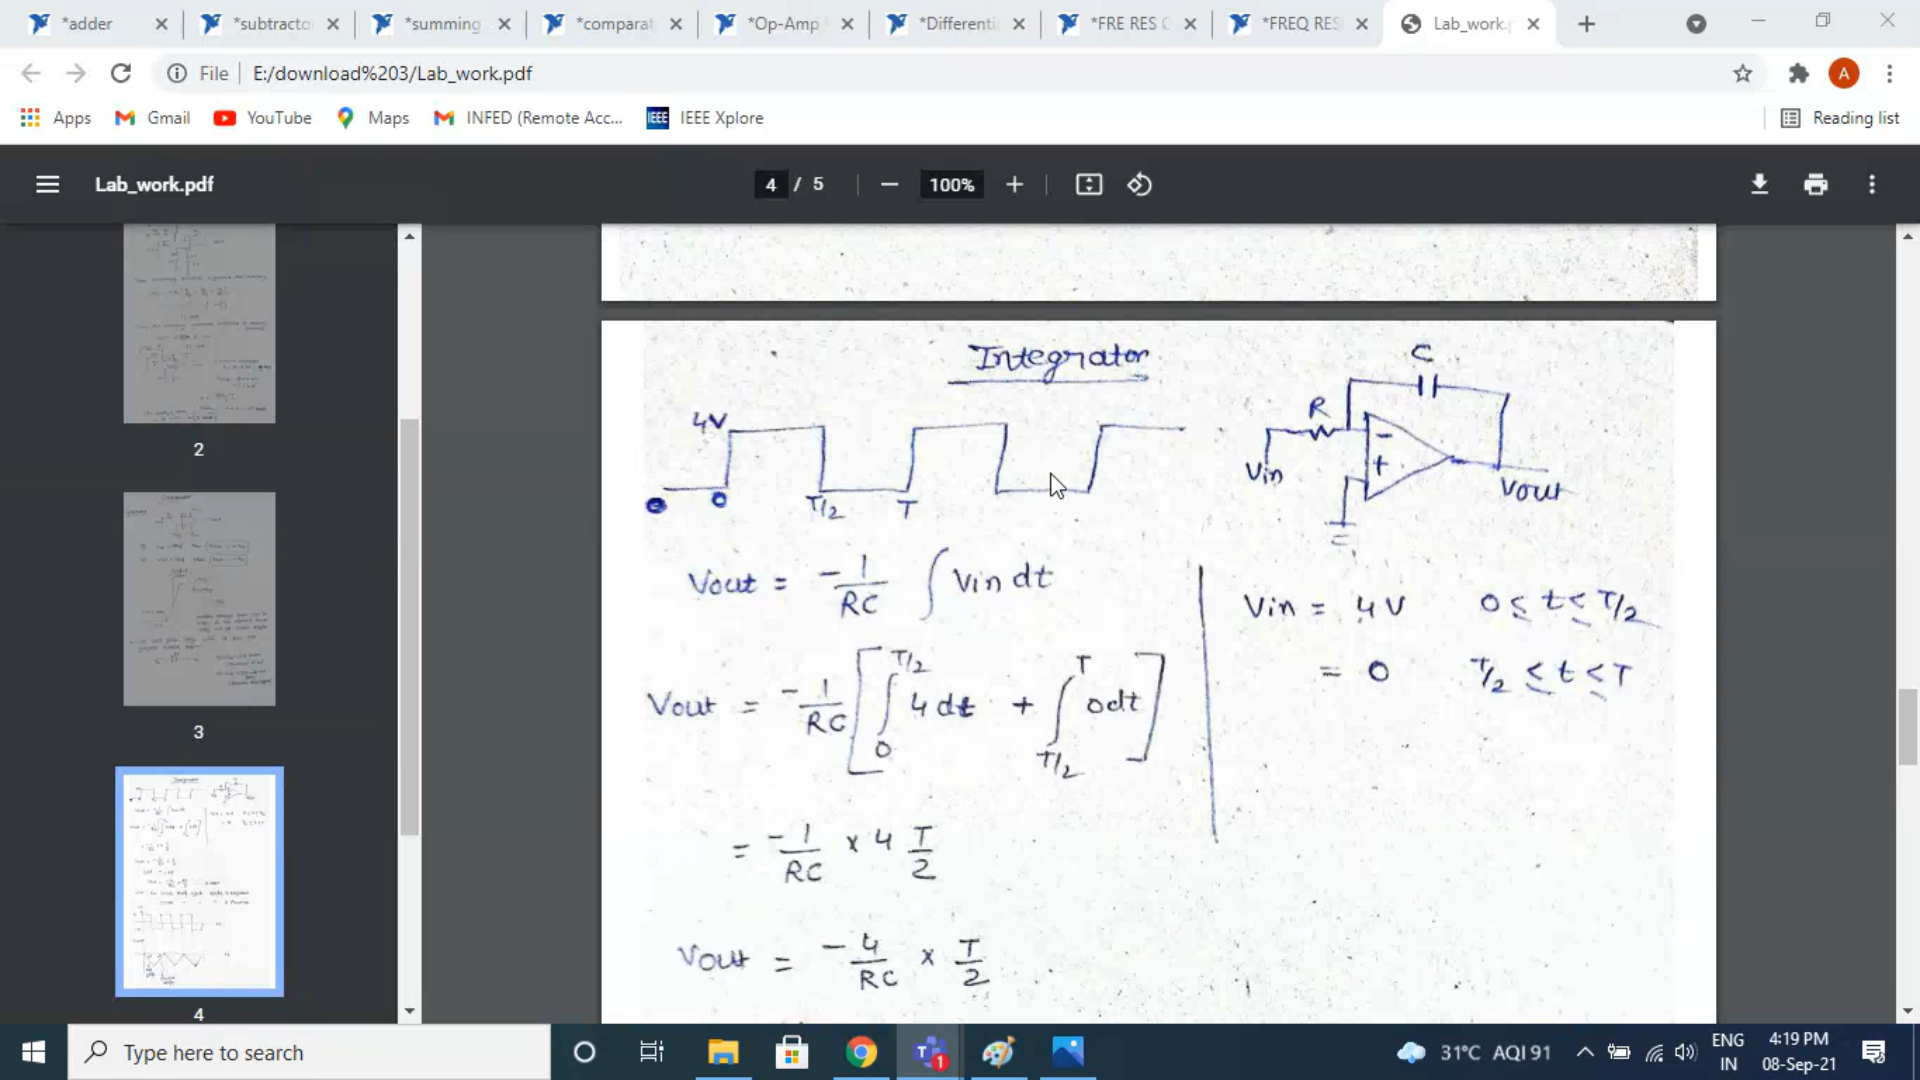 *adder
*subtracto
*summing
*comparat
*Op-Amp
*Differenti
*FRE RES C
*FREQ RES
Lab_work.p
File
E:/download%203/Lab_work.pdf
A
Apps
Gmail
YouTube
Maps
INFED (Remote Acc...
IEEE
IEEE Xplore
Reading list
Lab_work.pdf
4 / 5
100%
2
3
4
Integrator
4V
0 T/2 T
C
R
Vin
- +
Vout
Vout = -1/RC ∫ Vin dt
Vin = 4V 0 ≤ t ≤ T/2
= 0 T/2 ≤ t ≤ T
Vout = -1/RC [ ∫ 0 T/2 4dt + ∫ T/2 T 0dt ]
= -1/RC × 4 T/2
Vout = -4/RC × T/2
Type here to search
1
31°C AQI 91
ENG
IN
4:19 PM
08-Sep-21